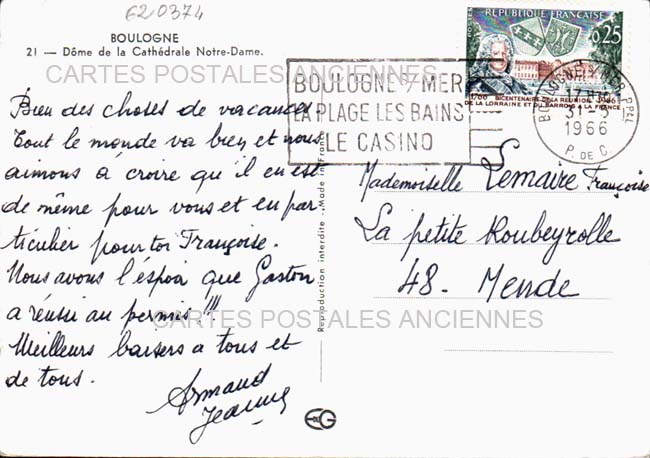 620374
BOULOGNE
21 — Dôme de la Cathédrale Notre-Dame.
CARTES POSTALES ANCIENNES
POSTES
RÉPUBLIQUE FRANÇAISE
0,25
1766 BICENTENAIRE DE LA RÉUNION 1966
DE LA LORRAINE ET DU BARROIS À LA FRANCE
BOULOGNE S/ MER
LA PLAGE LES BAINS
LE CASINO
BOULOGNE S/ MER PPAL
31-5
1966
P. DE C.
Bien des choses de vacances
Tout le monde va bien et nous
aimons à croire qu'il en est
de même pour vous et en par
ticulier pour toi Françoise.
Nous avons l'espoir que Gaston
a réussi au permis !!!
Meilleurs baisers a tous et
de tous.
Armand
Jeanne
Reproduction interdite - Made in France
Mademoiselle Lemaire Françoise
La petite Roubeyrolle
48. Mende
CARTES POSTALES ANCIENNES